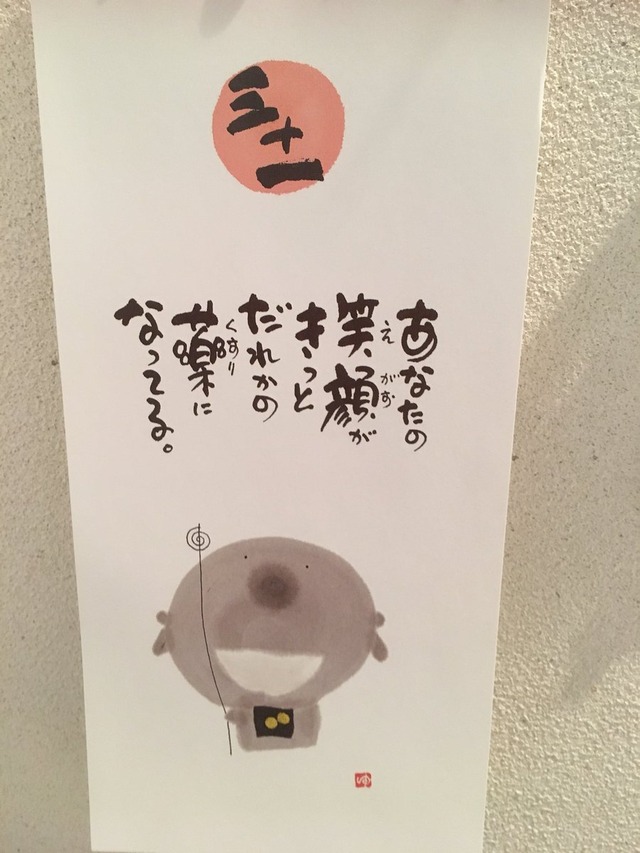 三十一
あなたの
笑顔が
えがお
きっと
だれかの
薬に
くすり
なってる。
ゆ